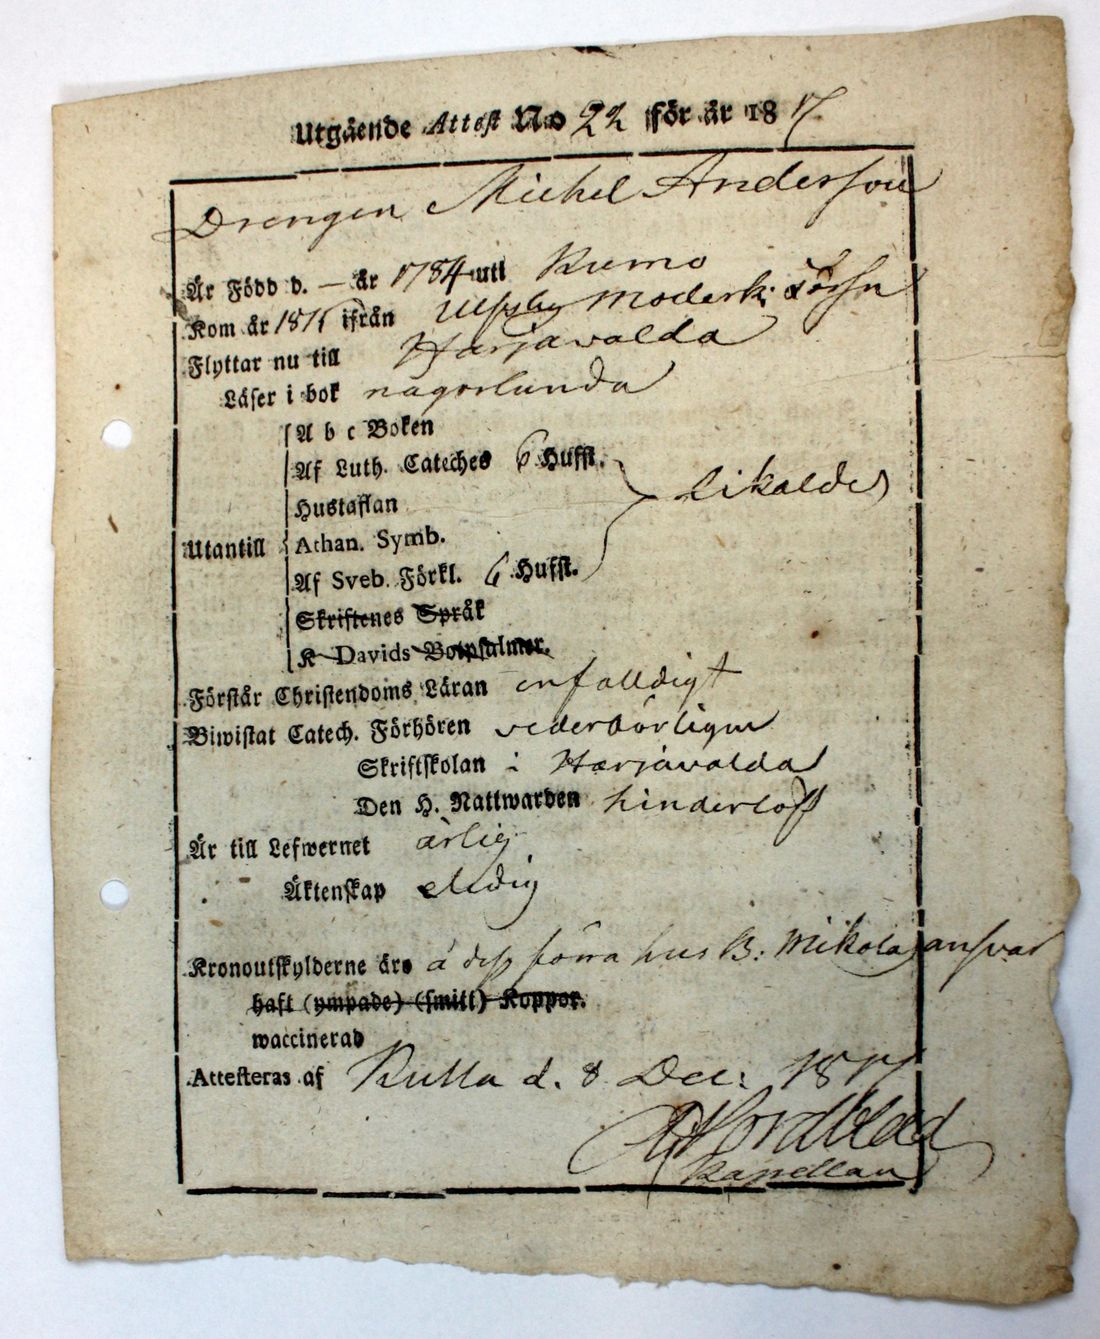 Utgående Attest No 22 för år 1817
Drengen Michel Anderson
Är Född d. — år 1784 uti Kumo
Kom år 1816 ifrån Ulfsby Moderk: Församl
Flyttar nu till Harjavalda
Läser i bok någorlunda
A b c Boken
Af Luth. Cateches 6 Hufst.
Hustaflan likaledes
Utantill Athan. Symb.
Af Sveb. Förkl. 6 Hufst.
Skriftenes Språk
K Davids Botpsalmer.
Förstår Christendoms Läran enfalldigt
Biwistat Catech. Förhören vederbörligen
Skriftskolan i Harjavalda
Den H. Nattwarden hinderlöst
Är till Lefwernet ärlig
Äktenskap ledig
Kronoutskylderne äro å dess förra hus B: Mikola ansvar
haft (ympade) (smitt) Koppor.
waccinerad
Attesteras af Kulla d. 8 Dec: 1817
Nordblad
Kapellan